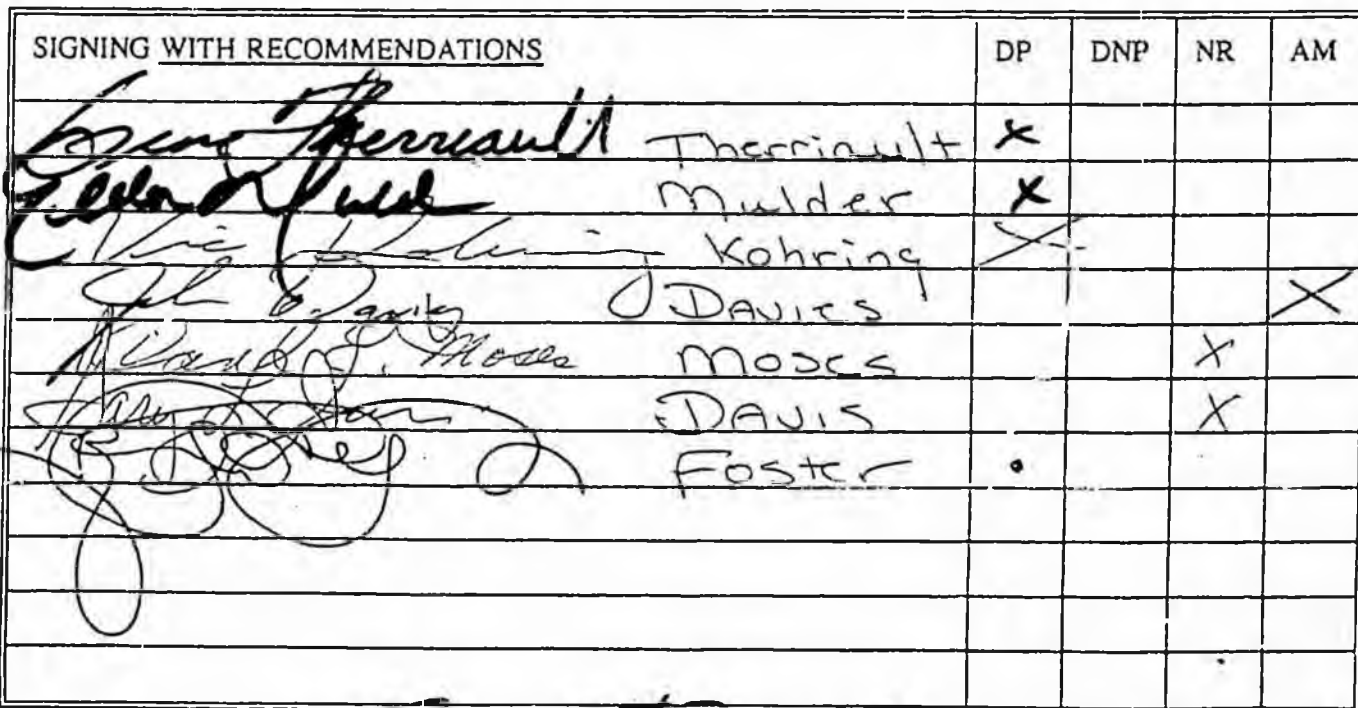 SIGNING WITH RECOMMENDATIONS DP DNP NR AM
Gene Therriault Therriault x
Eldon Mulder Mulder x
Vic Kohring Kohring X
John Davies DAVIES X
J. Moses Moses X
Gary L Davis DAVIS X
Foster •